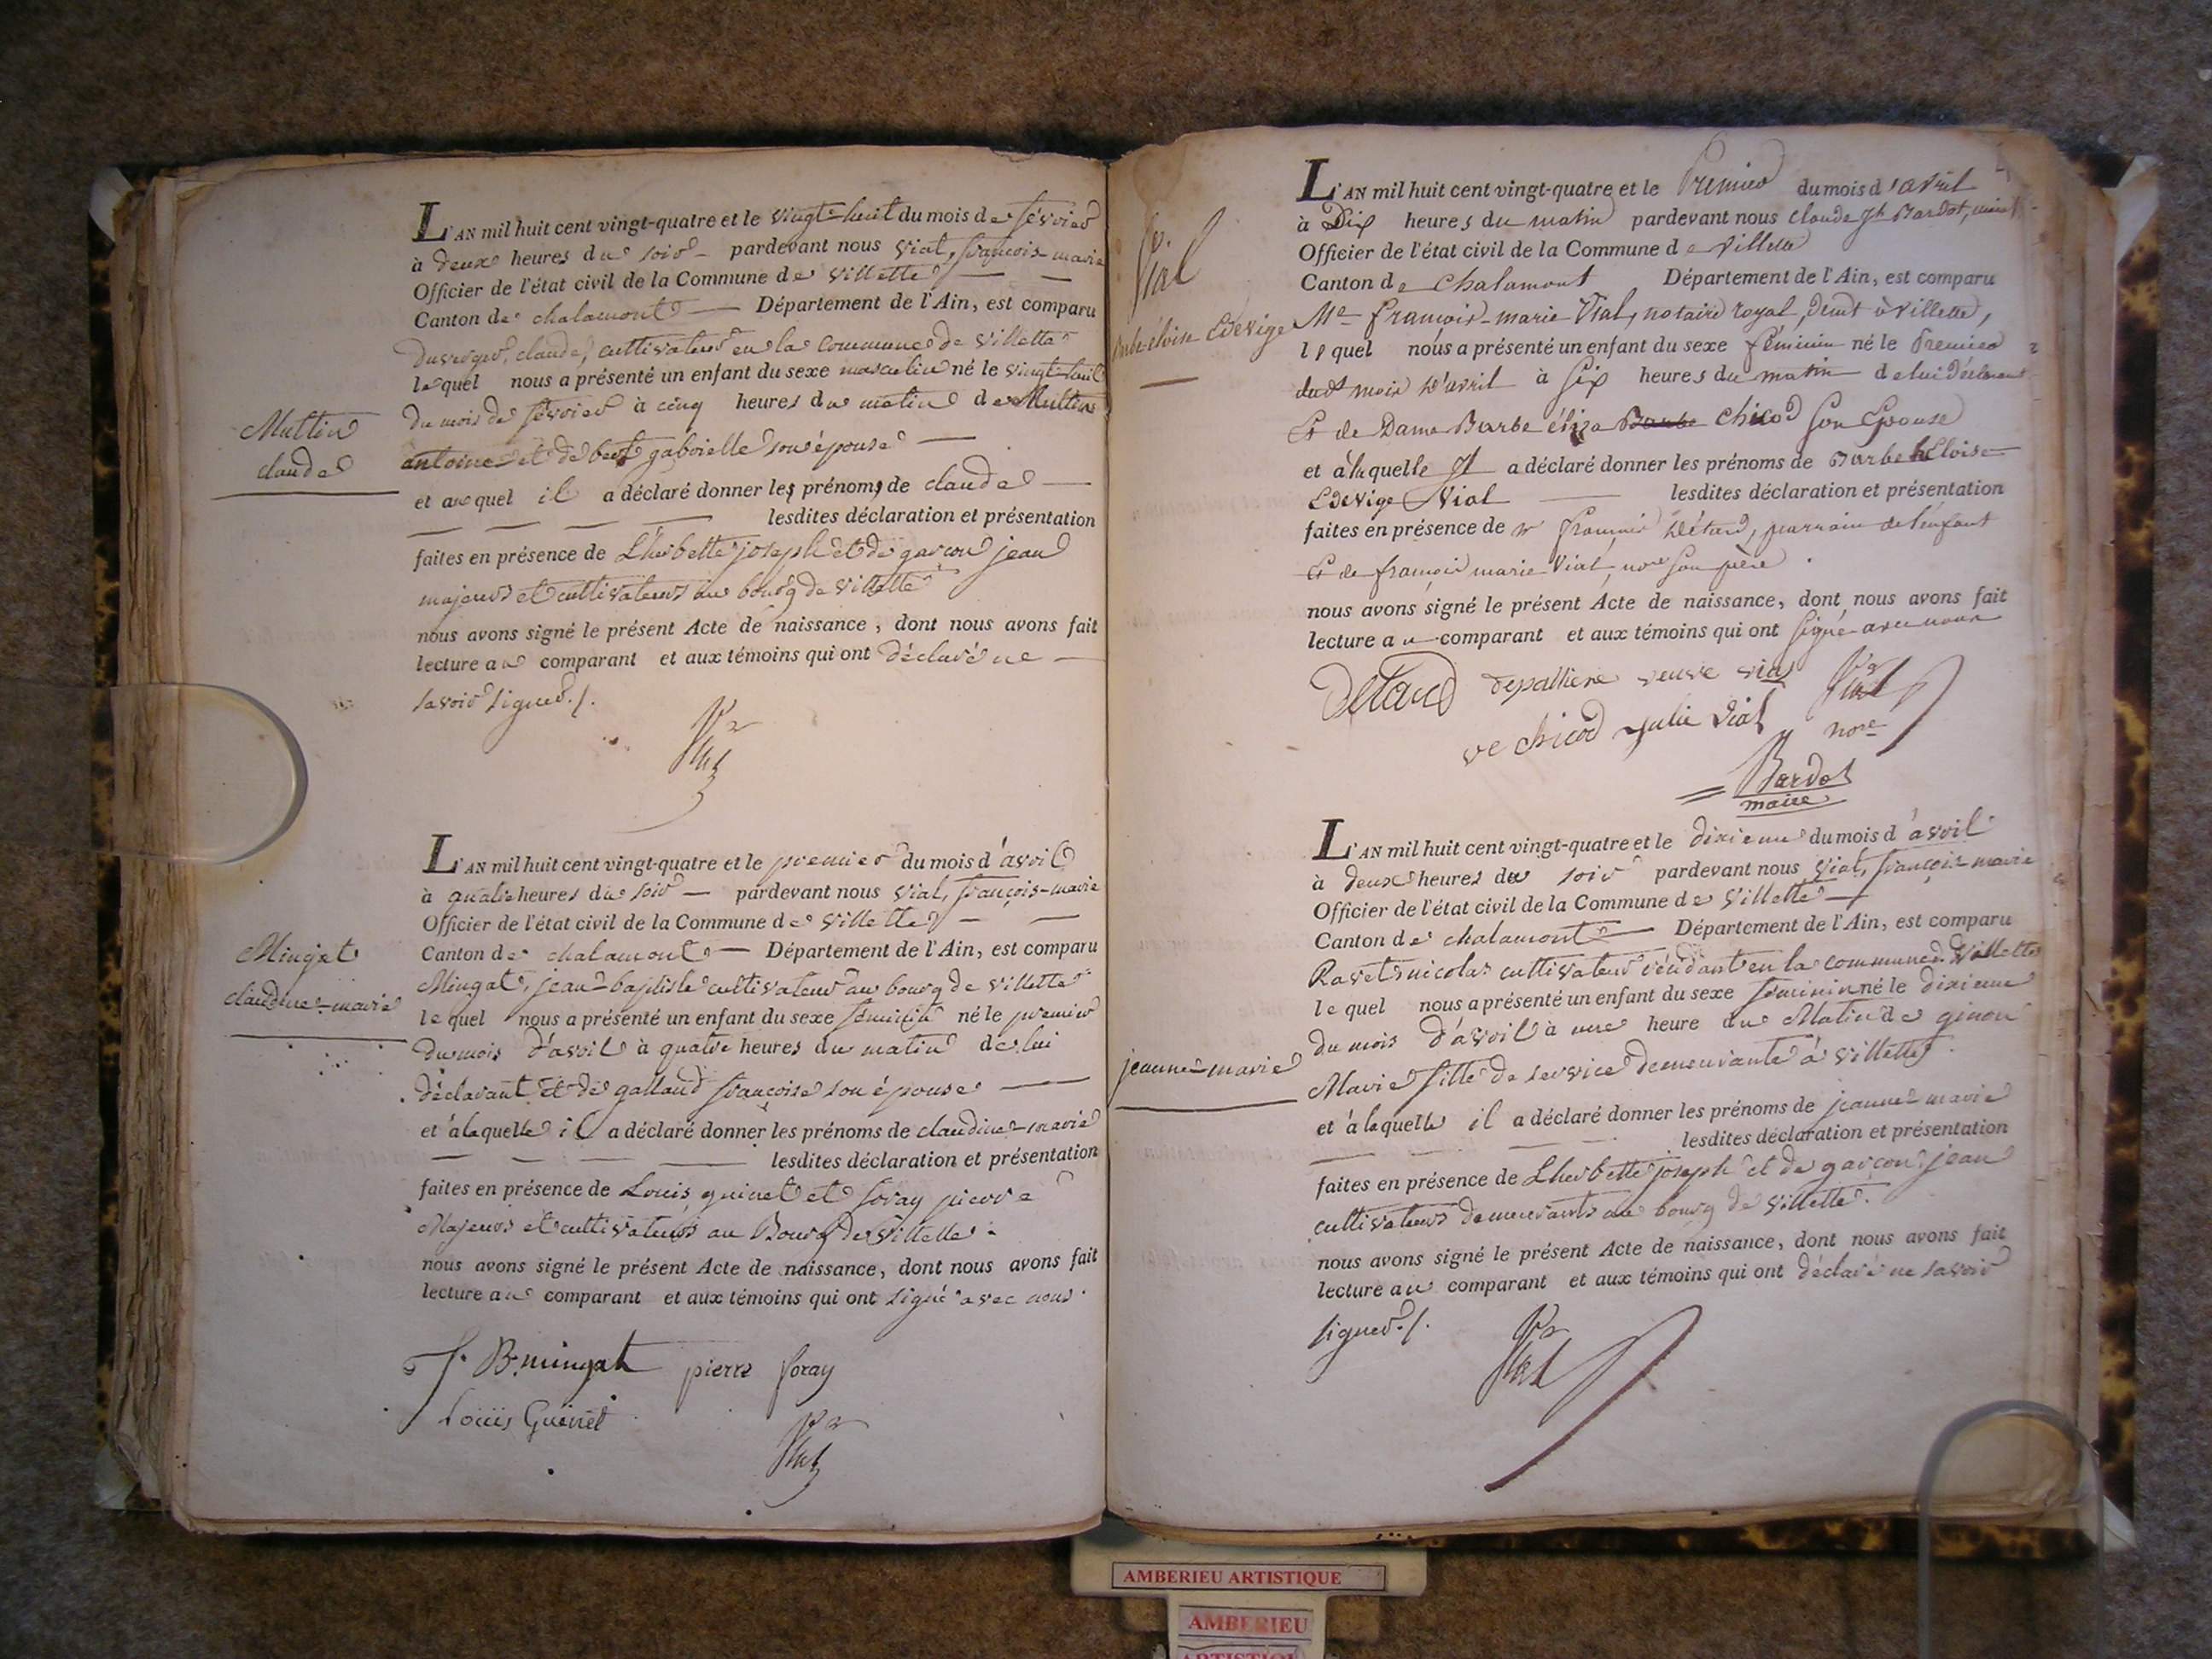 L'AN mil huit cent vingt-quatre et le vingt-huit du mois de février
à deux heures du soir pardevant nous Vial, françois-marie
Officier de l'état civil de la Commune de Villette
Canton de chalamont Département de l'Ain, est comparu
Duverger, claude, cultivateur en la commune de Villette
lequel nous a présenté un enfant du sexe masculin né le vingt-huit
du mois de février à cinq heures du matin de Multin
Multin
claude
antoine et de gabrielle son épouse
et auquel il a déclaré donner les prénoms de claude
lesdites déclaration et présentation
faites en présence de Lherbette joseph et de garçon jean
majeurs et cultivateurs au bourg de Villette
nous avons signé le présent Acte de naissance, dont nous avons fait
lecture au comparant et aux témoins qui ont déclaré ne
savoir signer./.
Vial
L'AN mil huit cent vingt-quatre et le premier du mois d'avril
à quatre heures du soir pardevant nous Vial, françois-marie
Officier de l'état civil de la Commune de Villette
Canton de chalamont Département de l'Ain, est comparu
Mingat
claudine-marie
Mingat, jean-baptiste cultivateur au bourg de Villette
lequel nous a présenté un enfant du sexe féminin né le premier
du mois d'avril à quatre heures du matin de lui
déclarant et de galland françoise son épouse
et à laquelle il a déclaré donner les prénoms de claudine-marie
lesdites déclaration et présentation
faites en présence de Louis guinet et foray pierre
Majeurs et cultivateurs au Bourg de Villette
nous avons signé le présent Acte de naissance, dont nous avons fait
lecture au comparant et aux témoins qui ont signé avec nous
J. B. mingat pierre foray
Louis Guinet
Vial
L'AN mil huit cent vingt-quatre et le Premier du mois d'avril
à Dix heures du matin pardevant nous claude Jh Bardot, maire
Officier de l'état civil de la Commune de Villette
Canton de Chalamont Département de l'Ain, est comparu
Vial
héloise Edevige
Me françois-marie Vial, notaire royal, à villette,
lequel nous a présenté un enfant du sexe féminin né le Premier
dudt mois d'avril à Six heures du matin de lui déclarant
Et de Dame Barbe éliza Barbe Chicod Son Epouse
et à laquelle Il a déclaré donner les prénoms de Barbe héloise
Edevige Vial lesdites déclaration et présentation
faites en présence de françois Détard, parrain de l'enfant
Et de françois marie Vial, nore Son père.
nous avons signé le présent Acte de naissance, dont nous avons fait
lecture au comparant et aux témoins qui ont Signé avec nous
Détard depalliere veuve vial Vial
ve chicod Julie Vial nore
Bardot
maire
L'AN mil huit cent vingt-quatre et le dixieme du mois d'avril
à deux heures du soir pardevant nous Vial, françois-marie
Officier de l'état civil de la Commune de Villette
Canton de chalamont Département de l'Ain, est comparu
Ravet nicolas cultivateur résidant en la commune de Villette
lequel nous a présenté un enfant du sexe féminin né le dixieme
du mois d'avril à une heure du Matin de ginon
jeanne-marie
Marie fille de service demeurante à Villette
et à laquelle il a déclaré donner les prénoms de jeanne-marie
lesdites déclaration et présentation
faites en présence de Lherbette joseph et de garçon jean
cultivateurs demeurants au bourg de Villette.
nous avons signé le présent Acte de naissance, dont nous avons fait
lecture au comparant et aux témoins qui ont déclaré ne savoir
signer./.
Vial
AMBERIEU ARTISTIQUE
AMBERIEU
ARTISTIQUE